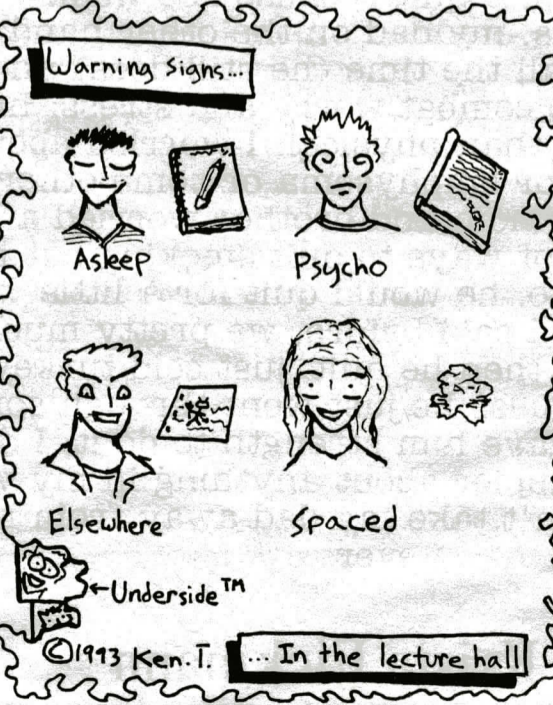 Warning signs...
Asleep
Psycho
Elsewhere
Spaced
←Underside™
©1993 Ken.T.
... In the lecture hall